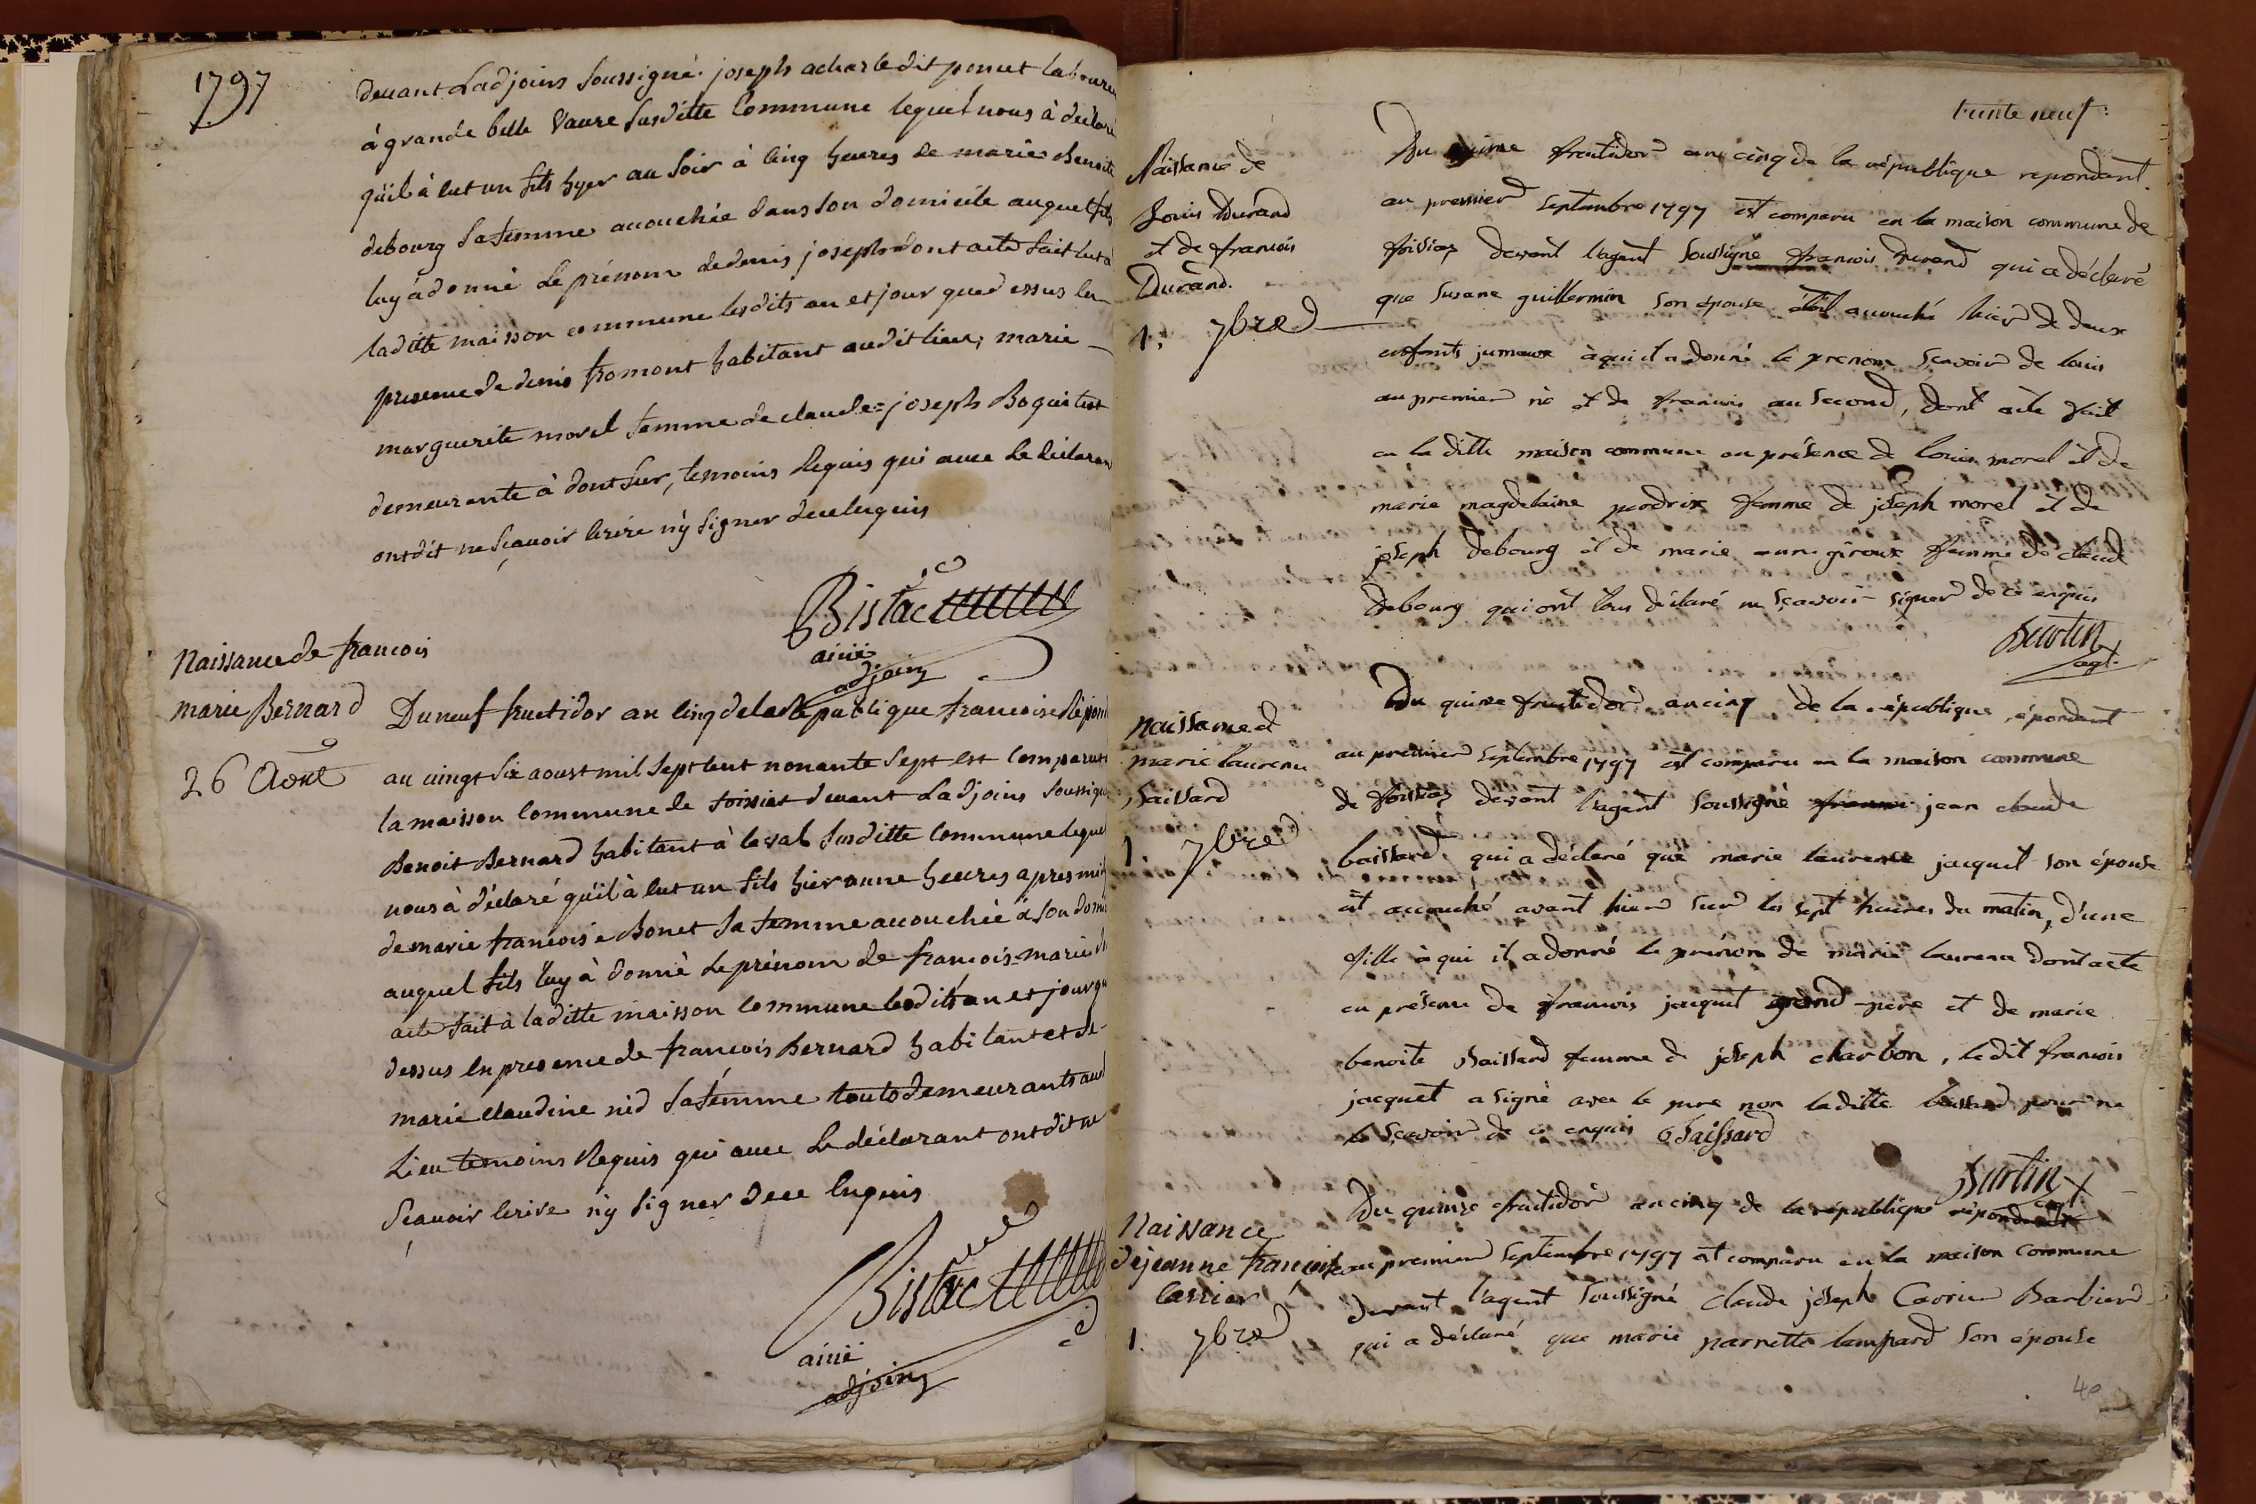 1797
devant Ladjoins Soussigné joseph acharle dit poncet laboure
à grande belle vaure Susditte Commune lequel nous à déclaré
qu'il à eut un fils hyer au Soir à Cinq heures de marie Benoite
debourg Sa femme accouchée dans Son domicile auquel fils
luy à donné Le prénom de denis joseph dont acte fait Le
laditte maisson commune lesdits an et jour que dessus En
presence de denis fromont habitant audit lieu, marie
marguerite morel femme de claude=joseph Boquitest
demeurante à dontsur, temoins Requis qui avec Le déclaran
ont dit ne Sçavoir Ecrire n'y Signer de ce Enquis
Bistac
ainé
adjoing
Naissance de francois
marie Bernard
26 Aout
Du neuf fructidor an Cinq de la Republique francoise Répond
au vingt Six aoust mil Sept Cent nonante Sept est Comparut
la maisson Commune de foissiat devant Ladjoins Soussigné
Benoit Bernard habitant à leval Susditte Commune lequel
nous à déclaré qu'il à eut un fils hier a une heures apres mi
de marie francoise Bonet Sa femme accouchée à Son domi
auquel fils luy à donné Le prénom de francois=marie
acte fait à laditte maisson Commune lesdits an et jour qu
dessus En presence de francois Bernard habitant et de
marie claudine nid Sa femme touts demeurants aud
Lieu temoins Requis qui avec Le déclarant ont dit ne
Sçavoir Ecrire n'y Signer de ce Enquis
Bistac
ainé
adjoing
trente neuf
Naissance de
Louis Durand
et de francois
Durand.
1. 7bre
Du quinze fructidor an cinq de la république repondant
au premier Septembre 1797 est comparu en la maison commune de
foissiaz devant l'agent Soussigné francois Durand qui a déclaré
que Susane guillermin Son épouse etoit accouché hier de deux
enfants jumeaux à qui il a donné le prenom Scavoir de louis
au premier né et de francois au Second, dont acte fait
en la ditte maison commune en présence de louis morel et de
marie magdelaine perdrix femme de joseph morel et de
joseph debourg et de marie anne giroux femme de claude
Debourg qui ont tous déclaré ne Scavoir Signer de ce enquis
Burtin
agt.
Naissance d
marie laurence
Baissard
1 7bre
Du quinze fructidor an cinq de la république répondant
au premier Septembre 1797 est comparu en la maison commune
de foissiaz devant l'agent Soussigné jean claude
baissard qui a déclaré que marie laurence jacquet son épouse
est accouché avant hier Sur les Sept heures du matin, d'une
fille à qui il a donné le prénom de marie laurence dont acte
en présence de francois jacquet grand-pere et de marie
benoite Baissard femme de joseph charbon, ledit francois
jacquet a Signé avec le pere non laditte baissard pour ne
le Scavoir de ce enquis Baissard
Burtin
agt.
Naissance
de jeanne francoise
Carrier
1. 7bre
Du quinze fructidor an cinq de la république répondant
au premier Septembre 1797 est comparu en la maison commune
devant l'agent Soussigné Claude joseph Carrier Barbier
qui a déclaré que marie pernette Son épouse
40